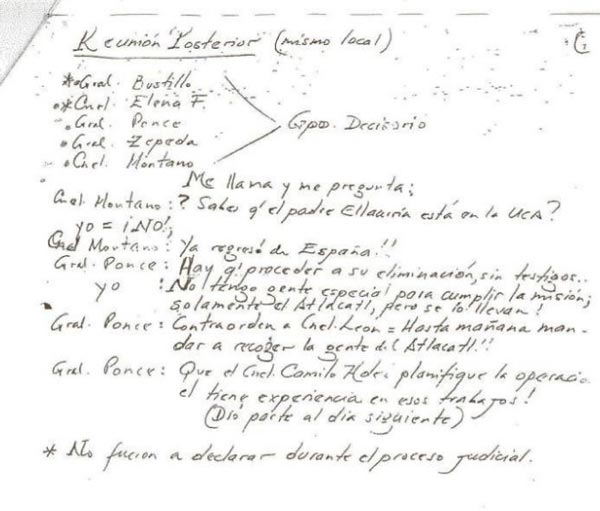 Reunión Posterior (mismo local)
*•Gral. Bustillo
•*Cnel. Elena F.
•Gral. Ponce
•Gral. Zepeda
•Cnel. Montano
Gpo. Decisorio
Me llama y me pregunta;
Cnel. Montano: ? Sabes q' el padre Ellacuría está en la UCA?
yo = ¡NO!,
Cnel Montano: Ya regresó de España!!
Gral. Ponce: Hay q' proceder a su eliminación, sin testigos..
yo : No tengo gente especial para cumplir la misión;
solamente el Atlacatl, pero se lo llevan!
Gral. Ponce: Contraorden a Cnel. Leon = Hasta mañana man-
dar a recoger la gente del Atlacatl.!!
Gral. Ponce: Que el Cnel. Camilo Hdez planifique la operació
el tiene experiencia en esos trabajos!
(Dió parte al día siguiente)
* No fueron a declarar durante el proceso judicial.